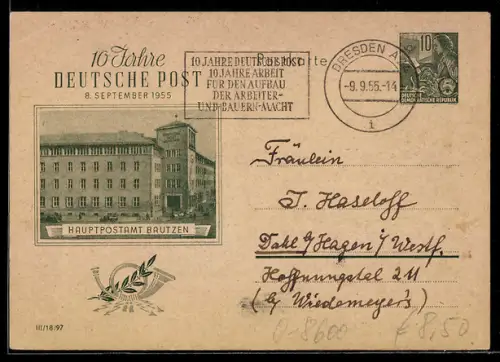 10 Jahre
DEUTSCHE POST
8. SEPTEMBER 1955
10 JAHRE DEUTSCHE POST
10 JAHRE ARBEIT
FÜR DEN AUFBAU
DER ARBEITER-
UND BAUERN-MACHT
Postkarte
DRESDEN A
-9.9.55.-14
i
10
DEUTSCHE
DEMOKRATISCHE REPUBLIK
HAUPTPOSTAMT BAUTZEN
III/18/97
Fräulein
J. Haseloff
Dahl b/Hagen i/Westf.
Hoffnungstal 211
(b/ Wiedemeyer's)
0-8600
€ 8,50